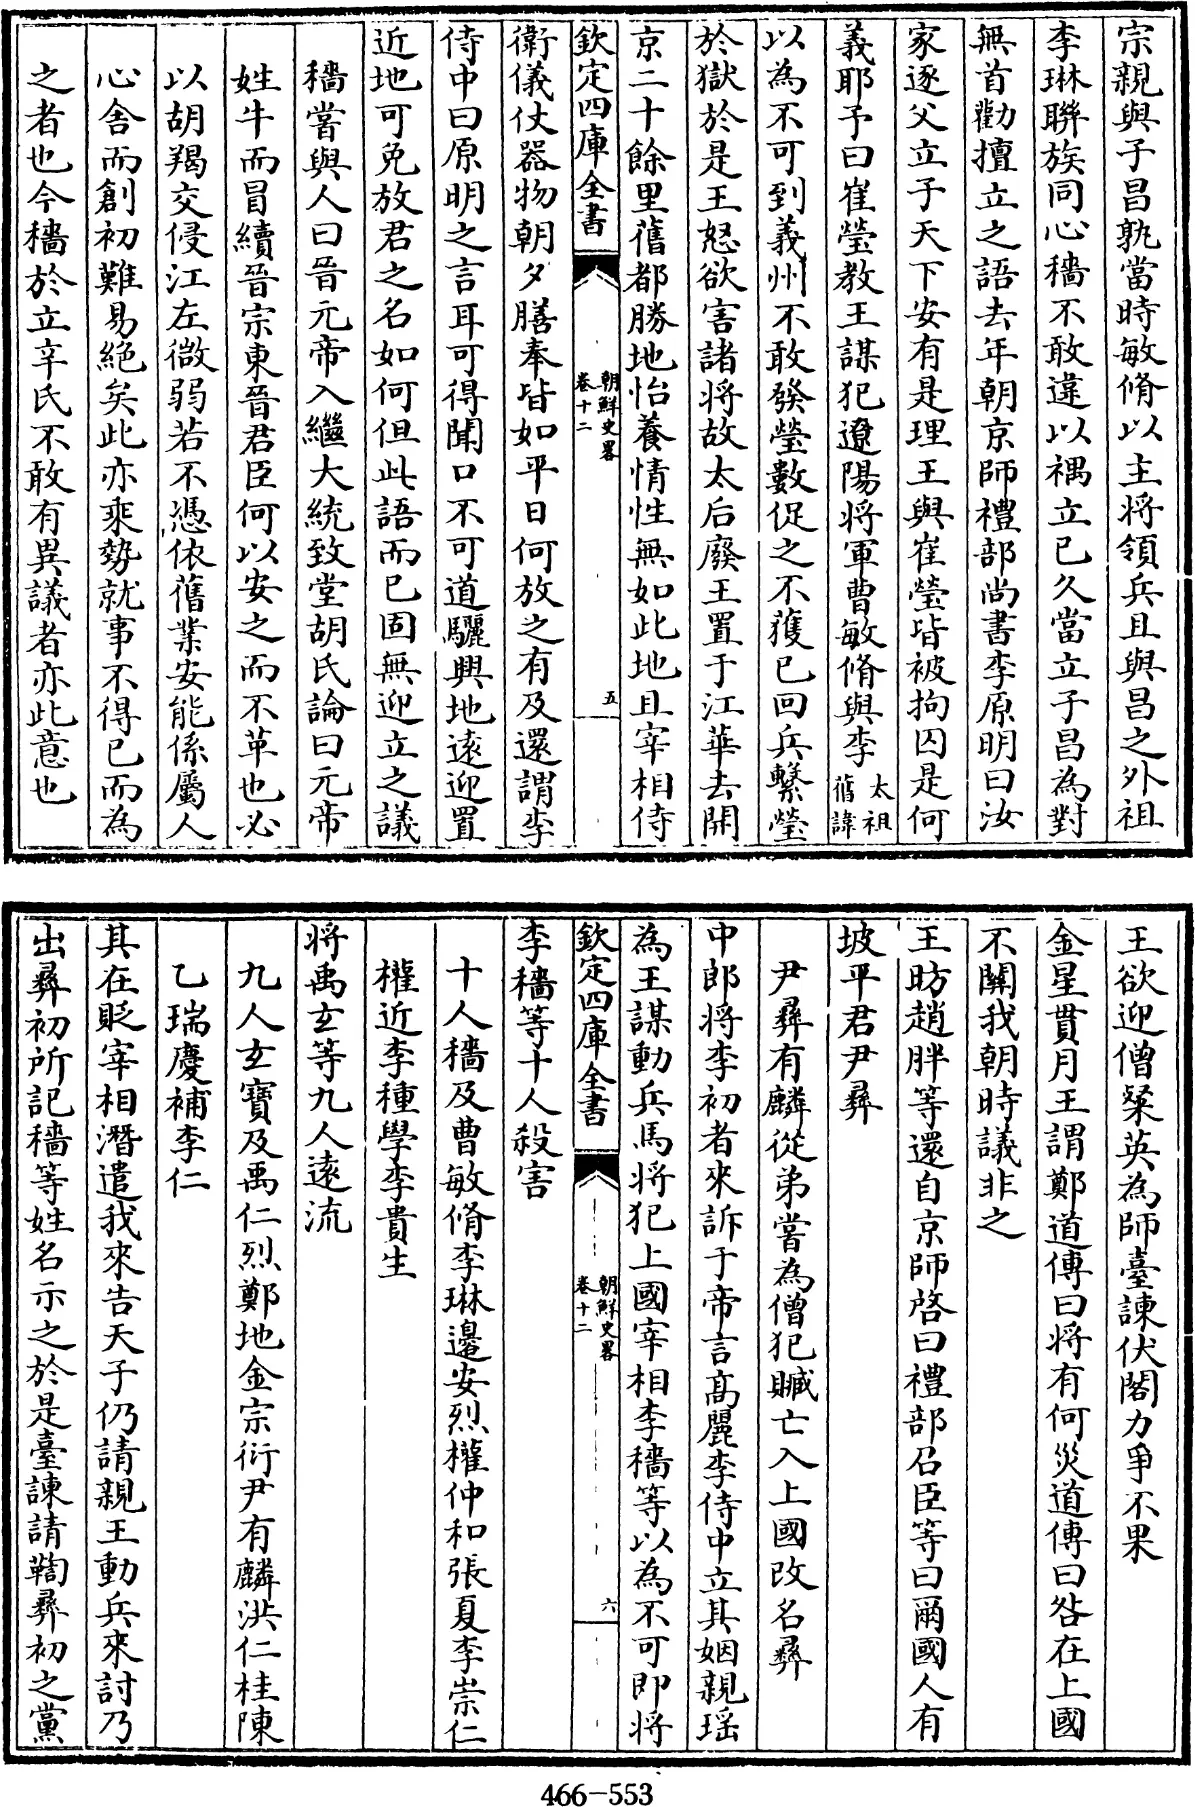 宗親與子昌孰當時敏脩以主將領兵且與昌之外祖
李琳聯族同心穡不敢違以禑立已久當立子昌為對
無首勸擅立之語去年朝京師禮部尚書李原明曰汝
家逐父立子天下安有是理王與崔瑩皆被拘囚是何
義耶予曰崔瑩教王謀犯遼陽將軍曹敏脩與李太祖舊諱
以為不可到義州不敢發瑩數促之不獲已回兵繫瑩
於獄於是王怒欲害諸將故太后廢王置于江華去開
京二十餘里舊都勝地怡養情性無如此地且宰相侍
欽定四庫全書 朝鮮史畧卷十二 五
衛儀仗器物朝夕膳奉皆如平日何放之有及還謂李
侍中曰原明之言耳可得聞口不可道驪興地遠迎置
近地可免放君之名如何但此語而已固無迎立之議
穡嘗與人曰晉元帝入繼大統致堂胡氏論曰元帝
姓牛而冒續晉宗東晉君臣何以安之而不革也必
以胡羯交侵江左微弱若不憑依舊業安能係屬人
心舍而創初難易絕矣此亦乘勢就事不得已而為
之者也今穡於立辛氏不敢有異議者亦此意也
王欲迎僧粲英為師臺諫伏閤力爭不果
金星貫月王謂鄭道傳曰將有何災道傳曰咎在上國
不關我朝時議非之
王昉趙胖等還自京師啓曰禮部召臣等曰爾國人有
坡平君尹彞
尹彞有麟從弟嘗為僧犯贓亡入上國改名彞
中郎將李初者來訴于帝言高麗李侍中立其姻親瑶
為王謀動兵馬將犯上國宰相李穡等以為不可即將
欽定四庫全書 朝鮮史畧卷十二 六
李穡等十人殺害
十人穡及曹敏脩李琳邊安烈權仲和張夏李崇仁
權近李種學李貴生
將禹玄等九人遠流
九人玄寶及禹仁烈鄭地金宗衍尹有麟洪仁桂陳
乙瑞慶補李仁
其在貶宰相潛遣我來告天子仍請親王動兵來討乃
出彞初所記穡等姓名示之於是臺諫請鞫彞初之黨
466-553